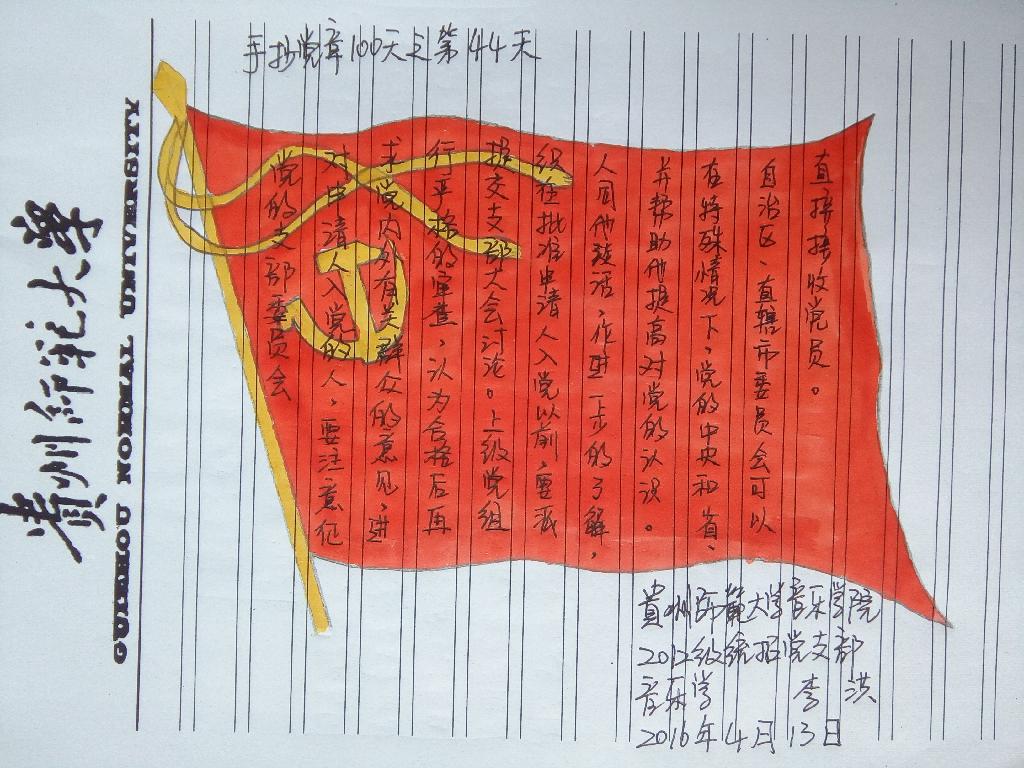 貴州师范大學
GUIZHOU NORMAL UNIVERSITY
手抄党章100天之第44天
党的支部委员会
对申请入党的人，要注意征
求党内外有关群众的意见，进
行严格的审查，认为合格后再
提交支部大会讨论。上级党组
织在批准申请人入党以前，要派
人同他谈话，作进一步的了解，
并帮助他提高对党的认识。
在特殊情况下，党的中央和省、
自治区、直辖市委员会可以
直接接收党员。
貴州师範大学音乐学院
2012级统招党支部
音乐学 李洪
2016年4月13日